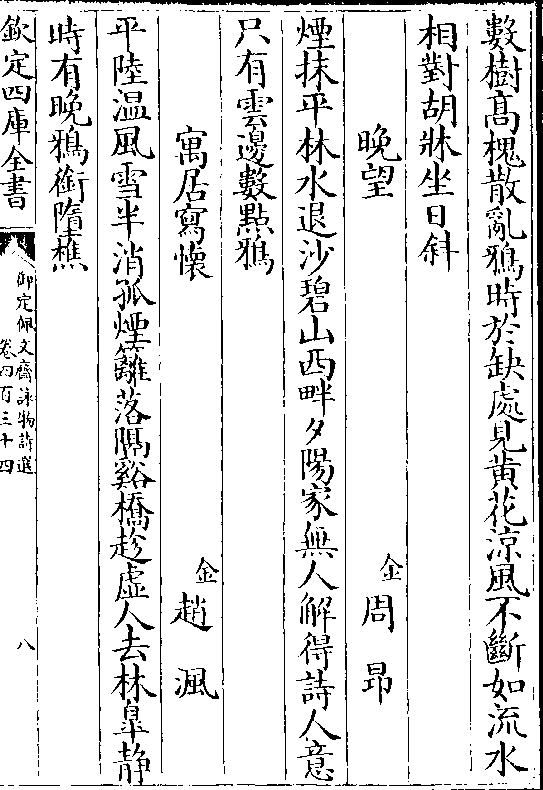 數樹髙槐散亂鴉時於缺處見黄花涼風不斷如流水
相對胡牀坐日斜
晚望　金　周昂
煙抹平林水退沙碧山西畔夕陽家無人解得詩人意
只有雲邊數點鴉
寓居寫懷　金　趙渢
平陸温風雪半消孤煙籬落隔谿橋趁虚人去林臯静
時有晚鴉銜墮樵
欽定四庫全書
御定佩文齋詠物詩選
卷四百三十四
八